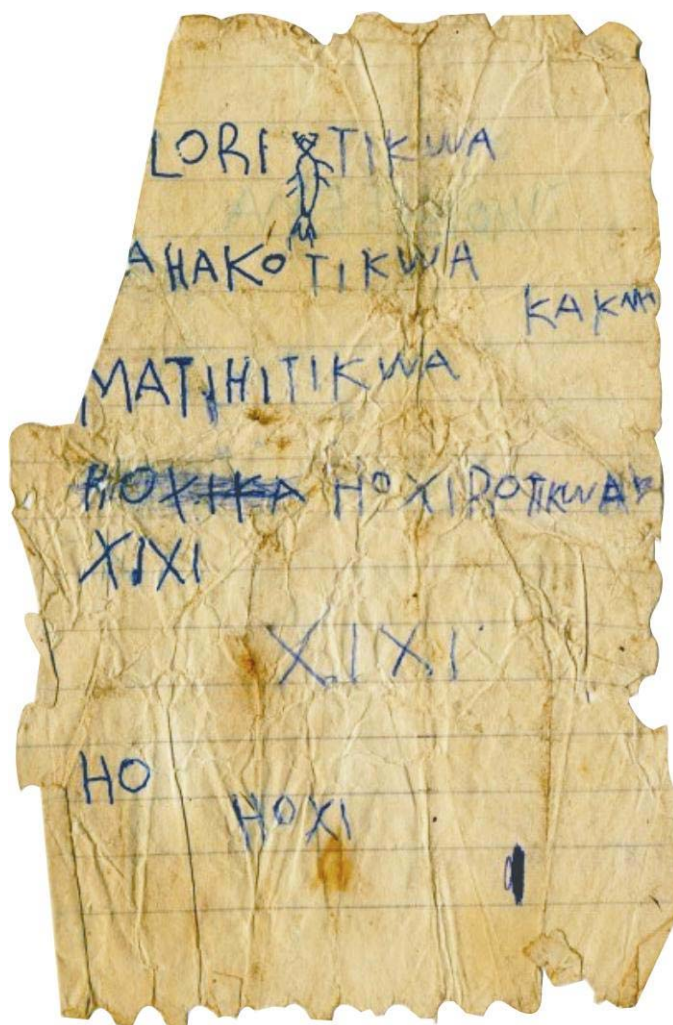 LORI TIKWA
AHAKO TIKWA
KAK
MATIHITIKWA
HOXIKA HOXIROTIKWA
XIXI
XIXI
HO
HOXI